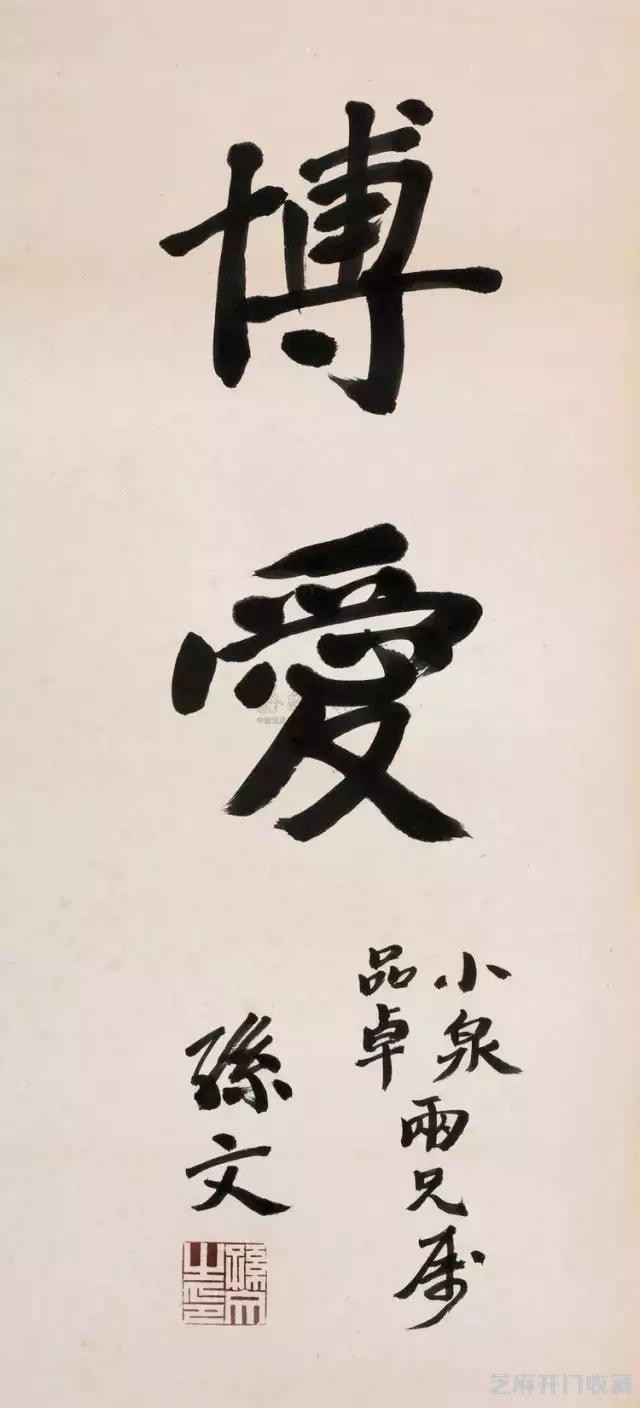 博愛
小泉
品卓
兩兄属
孫文
孫文之印
芝麻开门收藏